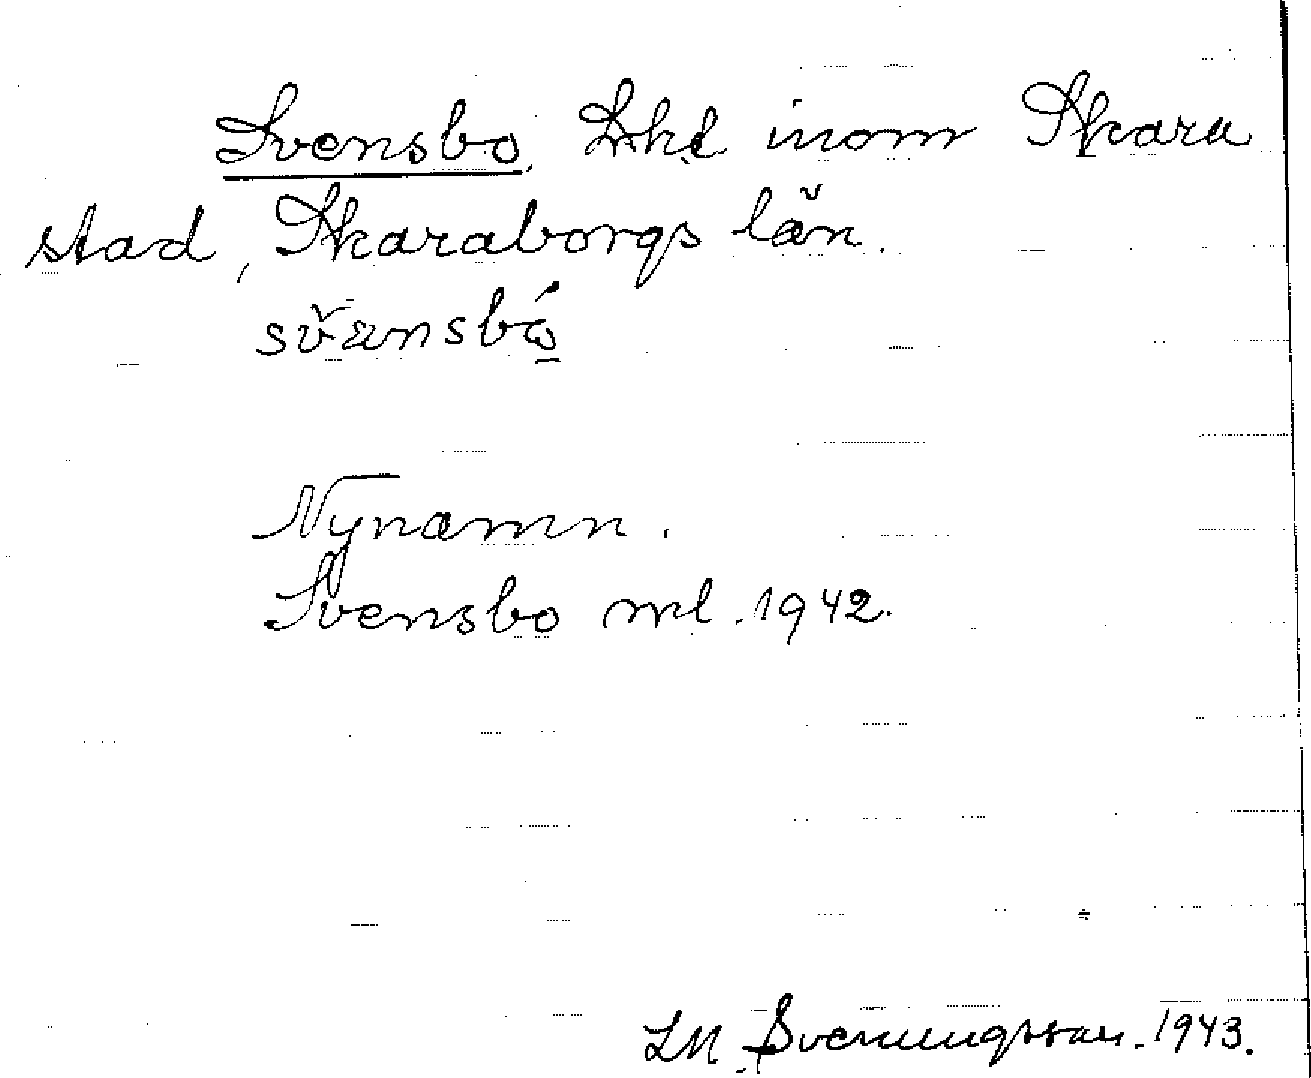 Svensbo. Lht inom Skara
stad, Skaraborgs län.
svænsbó
Nynamn.
Svensbo ml. 1942.
LM. Svenungsson. 1943.